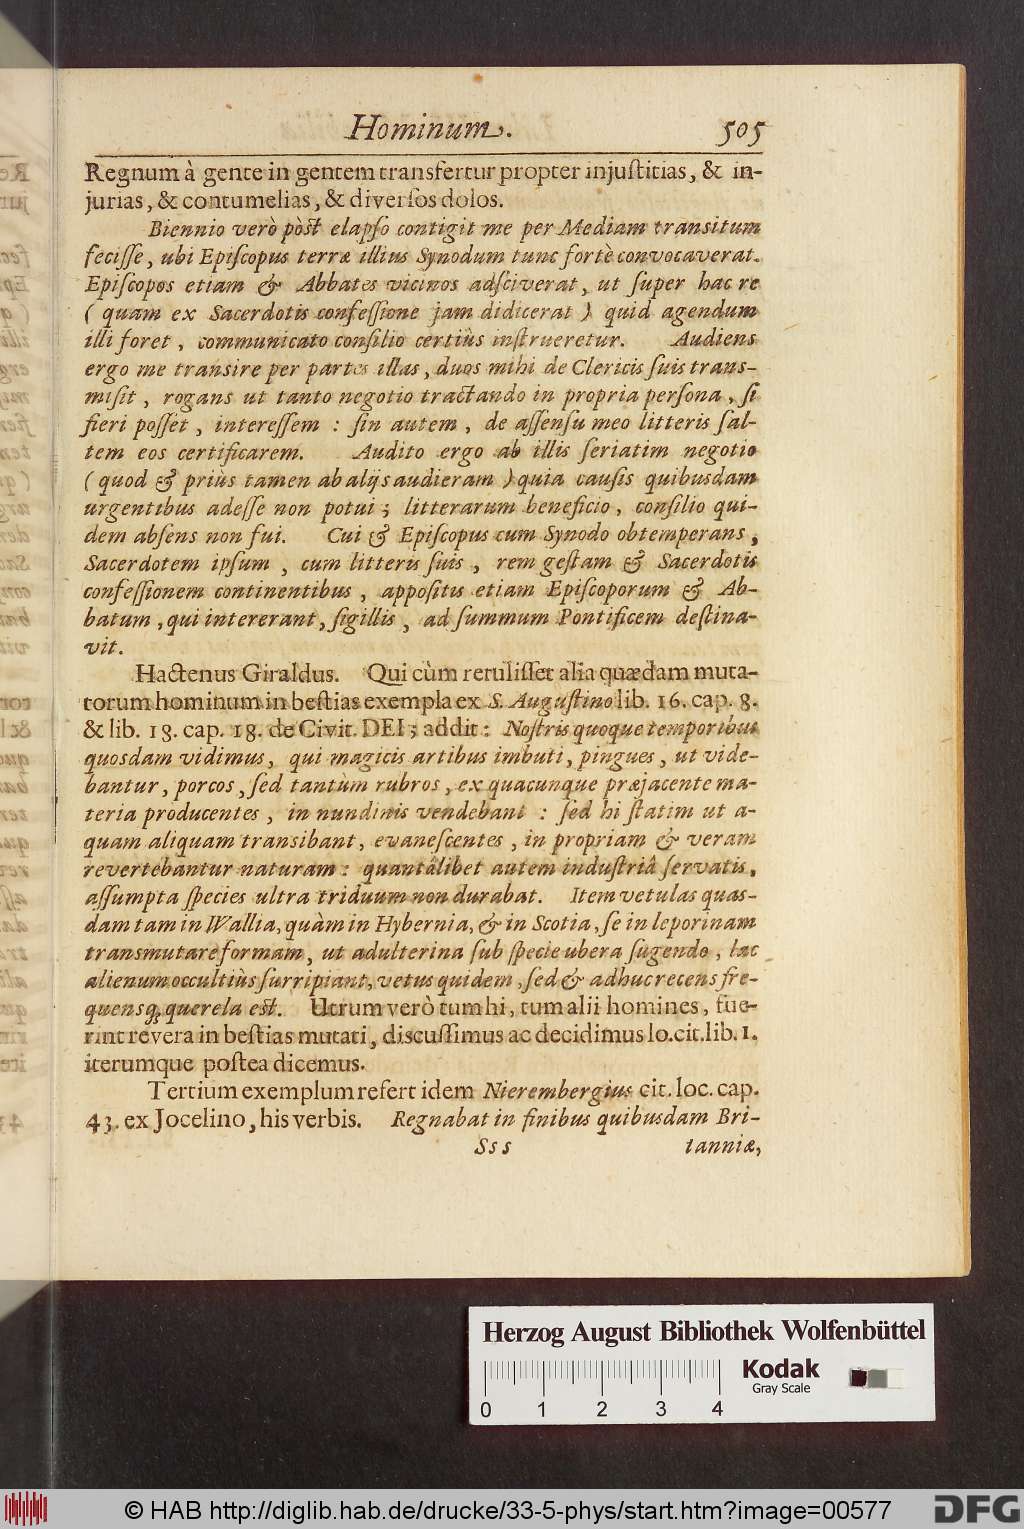 Hominum. 505
Regnum à gente in gentem transfertur propter injuſtitias, & in-
jurias, & contumelias, & diverſos dolos.
Biennio verò pòſt elapſo contigit me per Mediam tranſitum
feciſſe, ubi Epiſcopus terræ illius Synodum tunc fortè convocaverat.
Epiſcopos etiam & Abbates vicinos adſciverat, ut ſuper hac re
( quam ex Sacerdotis confeſſione jam didicerat ) quid agendum
illi foret, communicato conſilio certiùs inſtrueretur. Audiens
ergo me tranſire per partes illas, duos mihi de Clericis ſuis trans-
miſit, rogans ut tanto negotio tractando in propria perſona, ſi
fieri poſſet, intereſſem : ſin autem, de aſſenſu meo litteris ſal-
tem eos certificarem. Audito ergo ab illis ſeriatim negotio
( quod & priùs tamen ab alijs audieram ) quia cauſis quibusdam
urgentibus adeſſe non potui; litterarum beneficio, conſilio qui-
dem abſens non fui. Cui & Epiſcopus cum Synodo obtemperans,
Sacerdotem ipſum, cum litteris ſuis, rem geſtam & Sacerdotis
confeſſionem continentibus, appoſitis etiam Epiſcoporum & Ab-
batum, qui intererant, ſigillis, ad ſummum Pontificem deſtina-
vit.
Hactenus Giraldus. Qui cùm retuliſſet alia quædam muta-
torum hominum in beſtias exempla ex S. Auguſtino lib. 16. cap. 8.
& lib. 18. cap. 18. de Civit. DEI; addit: Noſtris quoque temporibus
quosdam vidimus, qui magicis artibus imbuti, pingues, ut vide-
bantur, porcos, ſed tantùm rubros, ex quacunque præjacente ma-
teria producentes, in nundinis vendebant : ſed hi ſtatim ut a-
quam aliquam tranſibant, evaneſcentes, in propriam & veram
revertebantur naturam: quantâlibet autem induſtriâ ſervatis,
aſſumpta ſpecies ultra triduum non durabat. Item vetulas quas-
dam tam in Wallia, quàm in Hybernia, & in Scotia, ſe in leporinam
transmutare formam, ut adulterina ſub ſpecie ubera ſugendo, lac
alienum occultiùs ſurripiant, vetus quidem, ſed & adhuc recens fre-
quensq; querela eſt. Utrum verò tum hi, tum alii homines, fue-
rint revera in beſtias mutati, discuſſimus ac decidimus lo. cit. lib. 1.
iterumque poſtea dicemus.
Tertium exemplum refert idem Nierembergius cit. loc. cap.
43. ex Jocelino, his verbis. Regnabat in finibus quibusdam Bri-
Sss tanniæ,
Herzog August Bibliothek Wolfenbüttel
Kodak
Gray Scale
0 1 2 3 4
© HAB http://diglib.hab.de/drucke/33-5-phys/start.htm?image=00577
DFG